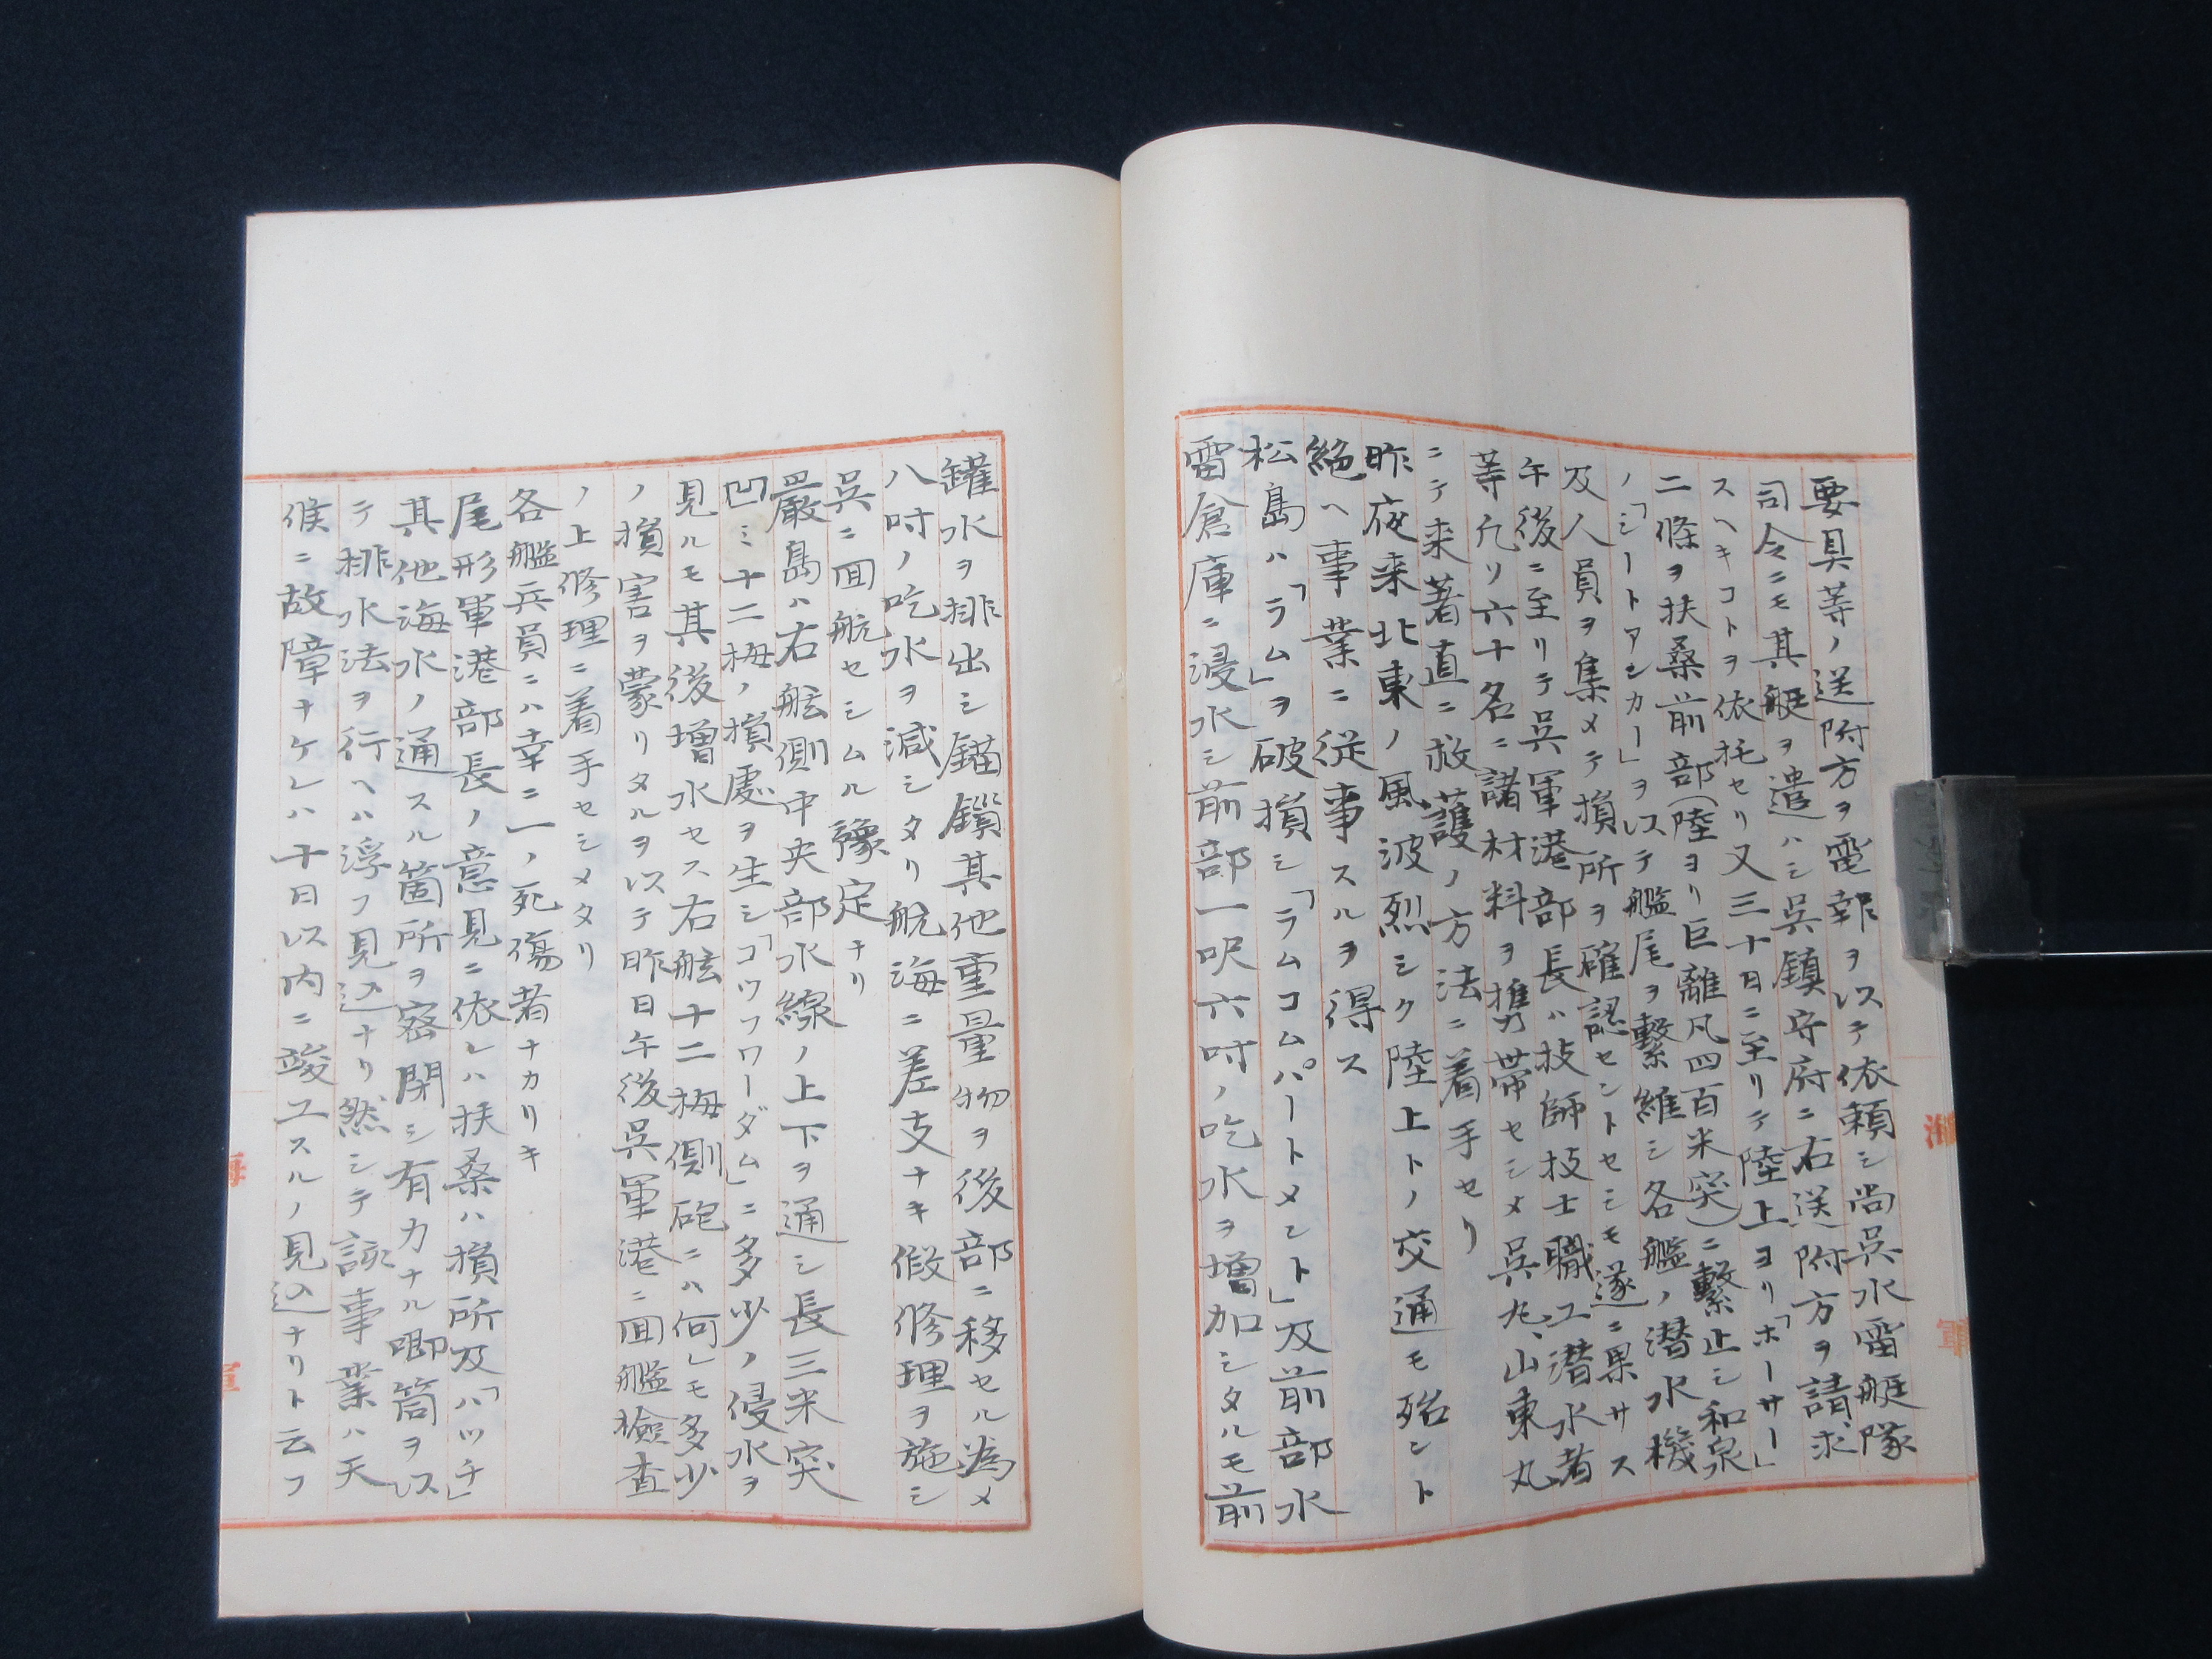 要具等ノ送附方ヲ電報ヲ以テ依頼シ尚呉水雷艇隊
司令ニモ其艇ヲ遣ハシ呉鎮守府ニ右送附方ヲ請求
スヘキコトヲ依托セリ又三十日ニ至リテ陸上ヨリ「ホーサー」
二條ヲ扶桑前部(陸ヨリ巨離凡四百米突)ニ繋止シ和泉
ノ「シートアンカー」ヲ以テ艦尾ヲ繋維シ各艦ノ潜水機
及人員ヲ集メテ損所ヲ確認セントセシモ遂ニ果サス
午後ニ至リテ呉軍港部長ハ技師技士職工潜水者
等凡ソ六十名ニ諸材料ヲ携帯セシメ呉丸、山東丸
ニテ来著直ニ救護ノ方法ニ着手セリ
昨夜来北東ノ風波烈シク陸上トノ交通モ殆ント
絶ヘ事業ニ従事スルヲ得ス
松島ハ「ラム」ヲ破損シ「ラムコムパートメント」及前部水
雷倉庫ニ浸水シ前部一呎六吋ノ吃水ヲ増加シタルモ前
罐水ヲ排出シ錨鎖其他重量物ヲ後部ニ移セル為メ
八吋ノ吃水ヲ減シタリ航海ニ差支ナキ假修理ヲ施シ
呉ニ回航セシムル豫定ナリ
嚴島ハ右舷側中央部水線ノ上下ヲ通シ長三米突
凹ミ十二栂ノ損處ヲ生シ「コッファーダム」ニ多少ノ侵水ヲ
見ルモ其後増水セス右舷十二栂側砲ニハ何レモ多少
ノ損害ヲ蒙リタルヲ以テ昨日午後呉軍港ニ回艦檢査
ノ上修理ニ着手セシメタリ
各艦兵員ニハ幸ニ一ノ死傷者ナカリキ
尾形軍港部長ノ意見ニ依レハ扶桑ハ損所及「ハッチ」
其他海水ノ通スル箇所ヲ密閉シ有力ナル喞筒ヲ以
テ排水法ヲ行ヘハ浮フ見込ナリ然シテ該事業ハ天
候ニ故障ナケレハ十日以内ニ竣工スルノ見込ナリト云フ
海軍
海軍